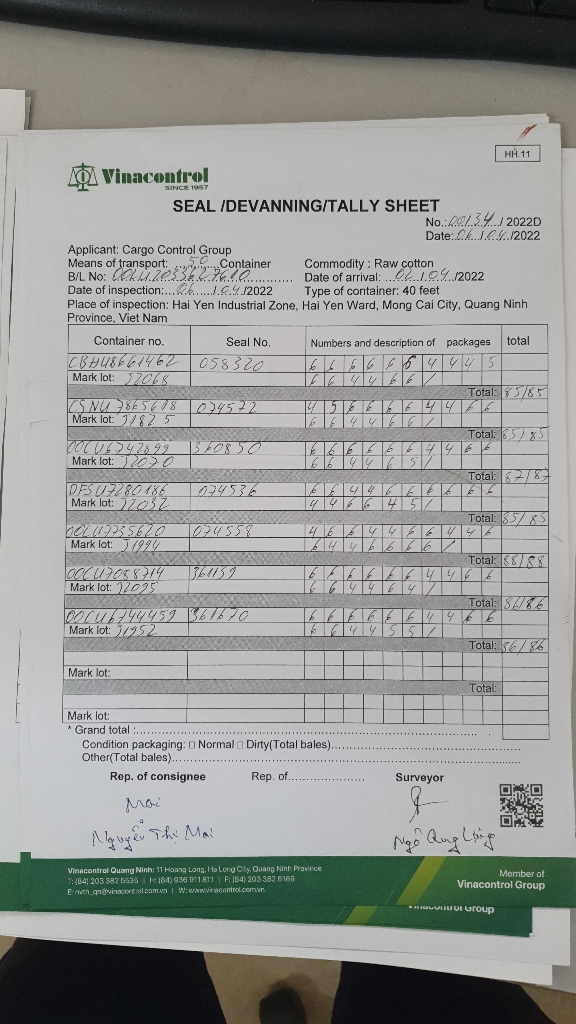 HH.11
Vinacontrol
SINCE 1957
SEAL /DEVANNING/TALLY SHEET
No.:00134/ 2022D
Date:06/04/2022
Applicant: Cargo Control Group
Means of transport: 50 Container Commodity : Raw cotton
B/L No: Date of arrival: 02/04/2022
Date of inspection: 06/04/2022 Type of container: 40 feet
Place of inspection: Hai Yen Industrial Zone, Hai Yen Ward, Mong Cai City, Quang Ninh
Province, Viet Nam
Container no. Seal No. Numbers and description of packages total
CBHU8661462 058320 6 6 6 6 6 6 4 4 4 5
Mark lot: J2068 6 6 4 4 6 6 /
Total: 85/85
CSNU7865618 074572 4 5 6 6 6 6 4 4 6 6
Mark lot: J1825 6 6 4 4 6 6 /
Total: 85/85
OOCU6742899 360850 6 6 6 6 6 6 4 4 6 6
Mark lot: J2070 6 6 4 4 6 5 /
Total: 87/87
DFSU7280186 074536 6 6 4 4 6 6 6 6 6 6
Mark lot: J2032 4 4 6 6 4 5 /
Total: 85/85
OOLU7735620 074558 4 6 6 4 4 6 6 4 4 6
Mark lot: J1994 6 4 4 6 6 6 6 /
Total: 88/88
OOCU7088714 361139 6 6 6 6 6 6 4 4 6 6
Mark lot: J2095 6 6 4 4 6 4 /
Total: 86/86
OOCU6744459 361670 6 6 6 6 6 6 4 4 6 6
Mark lot: J1952 6 6 4 4 5 5 /
Total: 86/86
Mark lot:
Total:
Mark lot:
* Grand total :
Condition packaging: □ Normal □ Dirty(Total bales)
Other(Total bales)
Rep. of consignee Rep. of Surveyor
Mai
Nguyễn Thị Mai Ngô Quang
Vinacontrol Quang Ninh: 11 Hoang Long, Ha Long City, Quang Ninh Province
T: (84) 203 382 5536 | H: (84) 936 911 811 | F: (84) 203 382 6169
E: nvth_qn@vinacontrol.com.vn | W: www.vinacontrol.com.vn
Member of
Vinacontrol Group
Vinacontrol Group